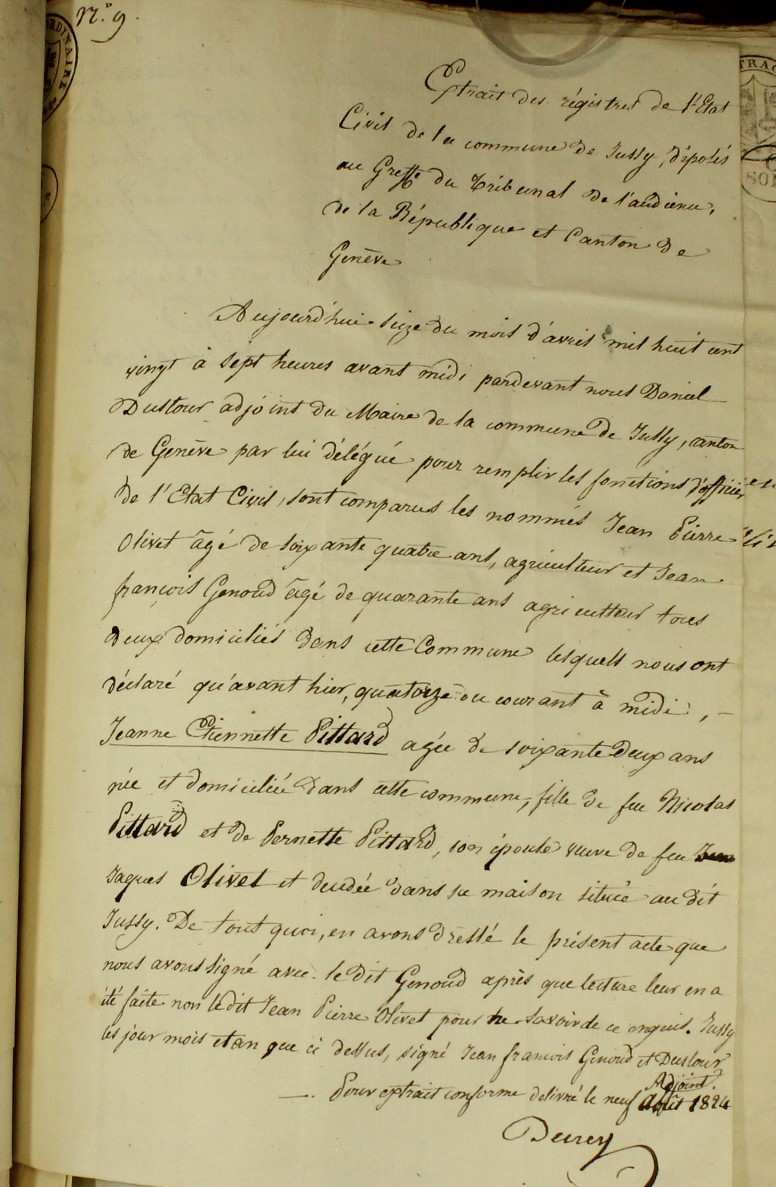 N.º 9.
Extrait des régistres de l'Etat
Civil de la commune de Jussy, déposés
au Greffe du Tribunal de l'audience,
de la République et Canton de
Genève
Aujourd'hui seize du mois d'avril mil huit cent
vingt à sept heures avant midi pardevant nous Daniel
Dustour adjoint du Maire de la commune de Jussy, canton
de Genève par lui délégué pour remplir les fonctions d'officier
de l'Etat Civil, sont comparus les nommés Jean Pierre
Olivet âgé de soixante quatre ans, agriculteur et Jean
françois Genoud âgé de quarante ans agriculteur tous
deux domiciliés dans cette Commune lesquels nous ont
déclaré qu'avant hier, quatorze du courant à midi, –
Jeanne Etiennette Pittard agée de soixante deux ans
née et domiciliée dans cette commune, fille de feu Nicolas
Pittard et de Pernette Pittard, son épouse veuve de feu Jean
Jaques Olivet et decedée dans sa maison située au dit
Jussy. De tout quoi, en avons dressé le présent acte que
nous avons signé avec le dit Genoud après que lecture leur en a
été faite non ledit Jean Pierre Olivet pour ne savoir de ce enquis. Jussy
les jour mois et an que ci dessus, signé Jean francois Genoud et Dustour
Adjoint.
—. Pour extrait conforme delivré le neuf Août 1824